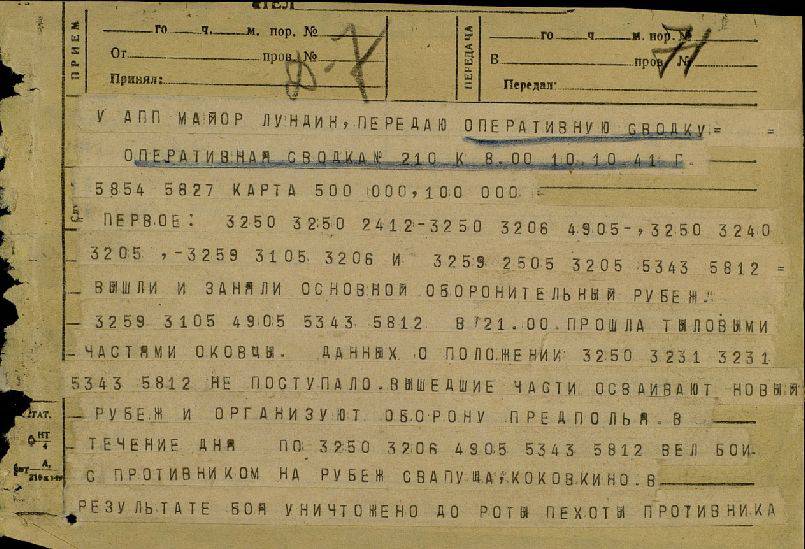 ТЕЛ
ПРИЕМ
го ч. м. пор. №
От пров. №
Принял:
Д-7
ПЕРЕДАЧА
го ч. м. пор. №
В пров. №
Передал:
71
У АПП МАЙОР ЛУНДИН, ПЕРЕДАЮ ОПЕРАТИВНУЮ СВОДКУ= =
ОПЕРАТИВНАЯ СВОДКА№ 210 К 8.00 10.10.41 Г.
5854 5827 КАРТА 500 000,100 000 =
ПЕРВОЕ: 3250 3250 2412-3250 3206 4905-,3250 3240
3205 ,-3259 3105 3206 И 3259 2505 3205 5343 5812 =
ВЫШЛИ И ЗАНЯЛИ ОСНОВНОЙ ОБОРОНИТЕЛЬНЫЙ РУБЕЖ.
3259 3105 4905 5343 5812 В 21.00.ПРОШЛА ТЫЛОВЫМИ
ЧАСТЯМИ ОКОВЦЫ. ДАННЫХ О ПОЛОЖЕНИИ 3250 3231 3231
5343 5812 НЕ ПОСТУПАЛО.ВЫШЕДШИЕ ЧАСТИ ОСВАИВАЮТ НОВЫЙ
РУБЕЖ И ОРГАНИЗУЮТ ОБОРОНУ ПРЕДПОЛЬЯ.В
ТЕЧЕНИЕ ДНЯ ПО 3250 3206 4905 5343 5812 ВЕЛ БОИ
С ПРОТИВНИКОМ НА РУБЕЖ СВАПУЩА,КОКОВКИНО.В
РЕЗУЛЬТАТЕ БОЯ УНИЧТОЖЕНО ДО РОТЫ ПЕХОТЫ ПРОТИВНИКА